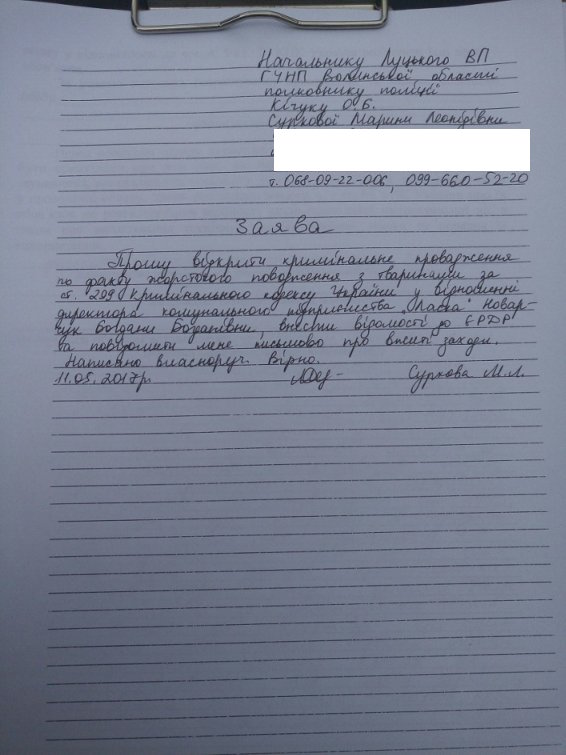 Начальнику Луцького ВП
ГУНП Волинської області
полковнику поліції
Кічуку О.Б.
Суркової Марини Леонідівни
т. 068-09-22-006, 099-660-52-20
Заява
Прошу відкрити кримінальне провадження
по факту жорстокого поводження з тваринами за
ст. 299 Кримінального кодексу України у відношенні
директора комунального підприємства „Ласка" Новар-
чук Богдани Богданівни, внести відомості до ЄРДР
та повідомити мене письмово про вжиті заходи.
Написано власноруч. Вірно.
11.05.2017р. Суркова М.Л.